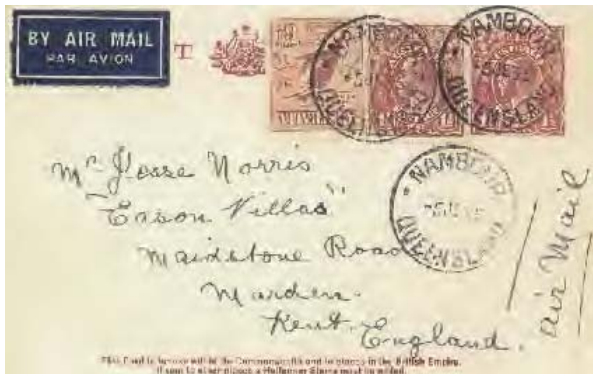 BY AIR MAIL
PAR AVION
T
AIR MAIL
NAMBOUR
QUEENSLAND
NAMBOUR
QUEENSLAND
NAMBOUR
QUEENSLAND
Mr Jesse Norris
"Eason Villas"
Maidstone Road
Marden.
Kent. England.
Air Mail
This Card is for use within the Commonwealth and to places in the British Empire.
If sent to other places a Halfpenny Stamp must be added.